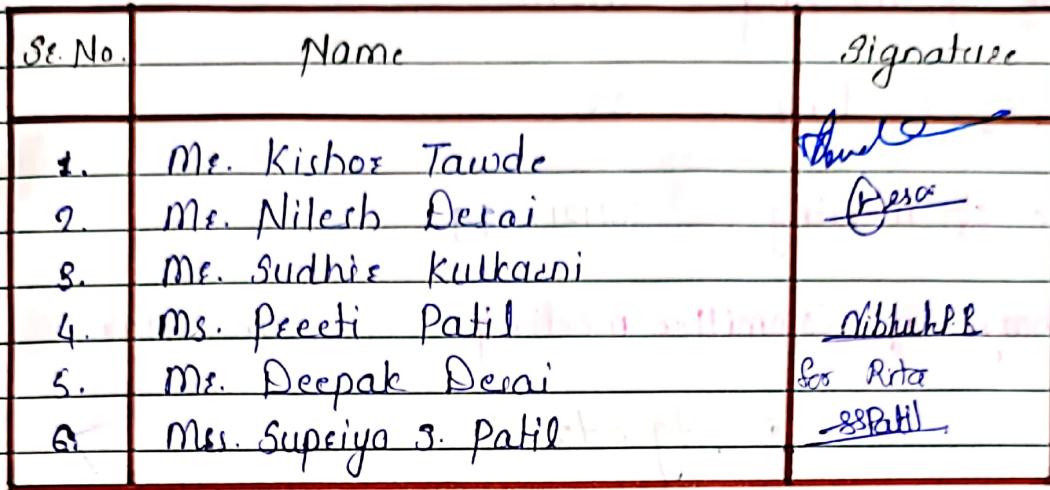 Sr. No. Name Signature
1. Mr. Kishor Tawde
2. Mr. Nilesh Desai Desai
3. Mr. Sudhir Kulkarni
4. Ms. Preeti Patil
5. Mr. Deepak Desai for Rita
6. Mrs. Supriya S. Patil SSPatil